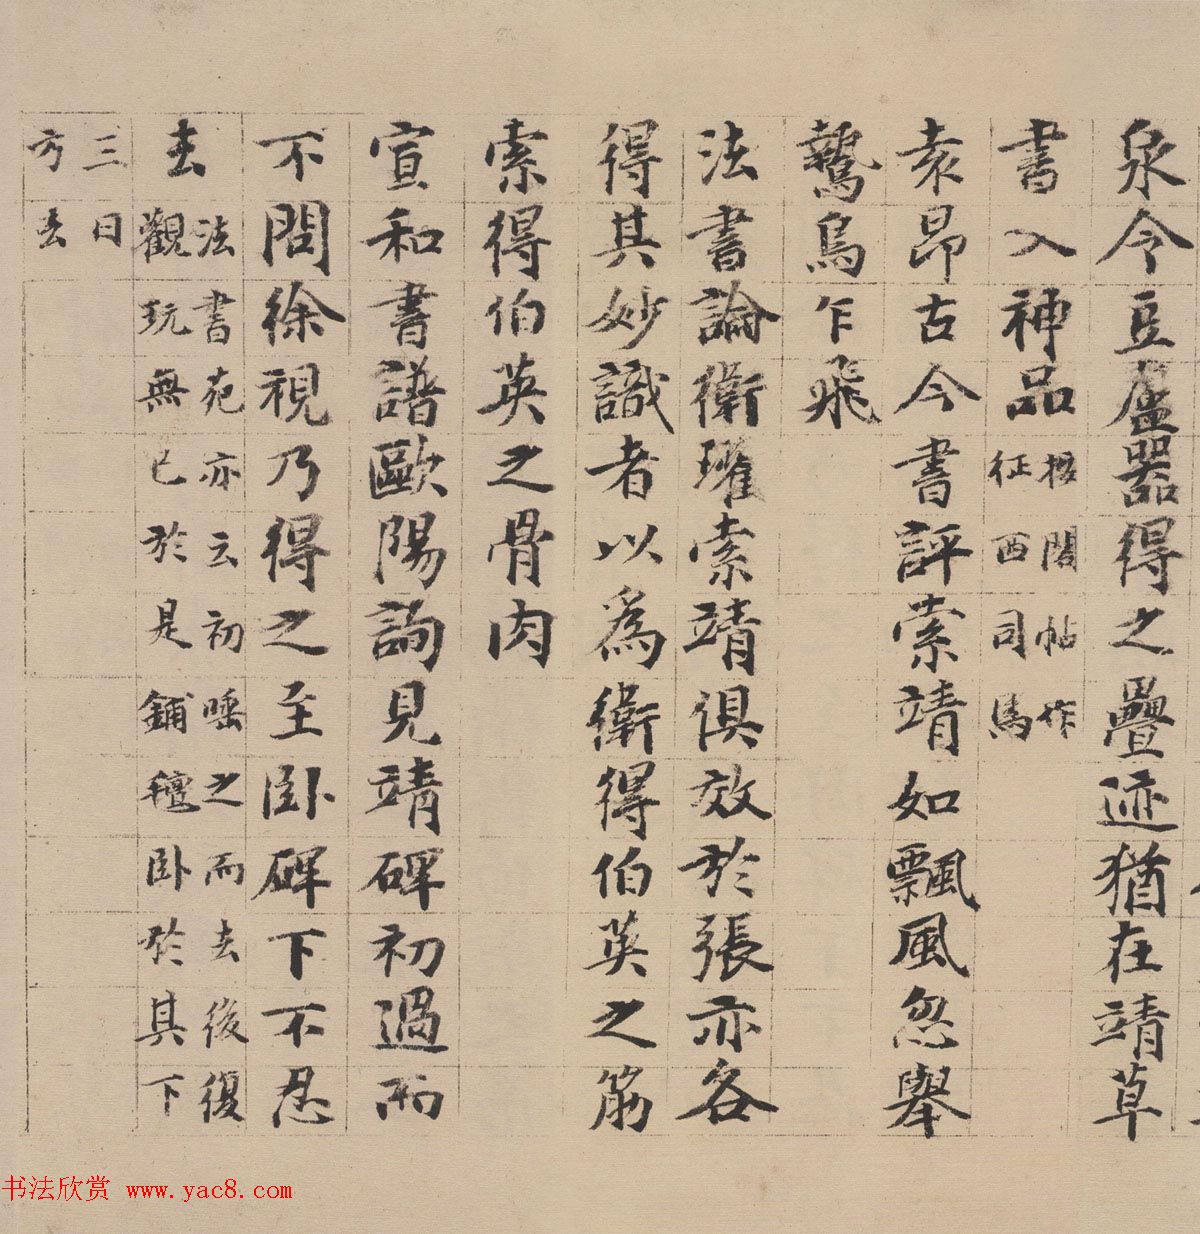 泉令豆盧器得之疊迹猶在靖草
書入神品
按閣帖作
征西司馬
袁昂古今書評索靖如飄風忽舉
鷙鳥乍飛
法書論衛瓘索靖俱效於張亦各
得其妙識者以為衛得伯英之筋
索得伯英之骨肉
宣和書譜歐陽詢見靖碑初過而
不問徐視乃得之至卧碑下不忍
去
法書苑亦云初唾之而去後復
觀玩無已於是鋪氊卧於其下
三日
方去
书法欣赏 www.yac8.com